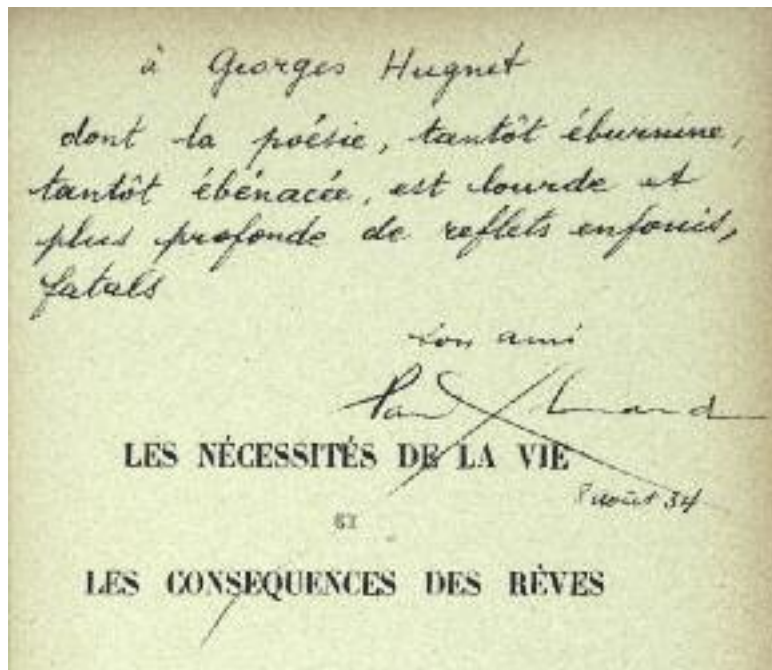 à Georges Hugnet
dont la poésie, tantôt éburnine,
tantôt ébénacée, est lourde et
plus profonde de reflets enfouis,
fatals
son ami
Paul Eluard
LES NÉCESSITÉS DE LA VIE
8 août 34
ET
LES CONSEQUENCES DES RÊVES